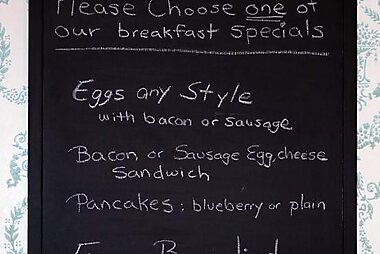 Please Choose one of
our breakfast specials
Eggs any Style
with bacon or sausage
Bacon or Sausage Egg, cheese
Sandwich
Pancakes: blueberry or plain